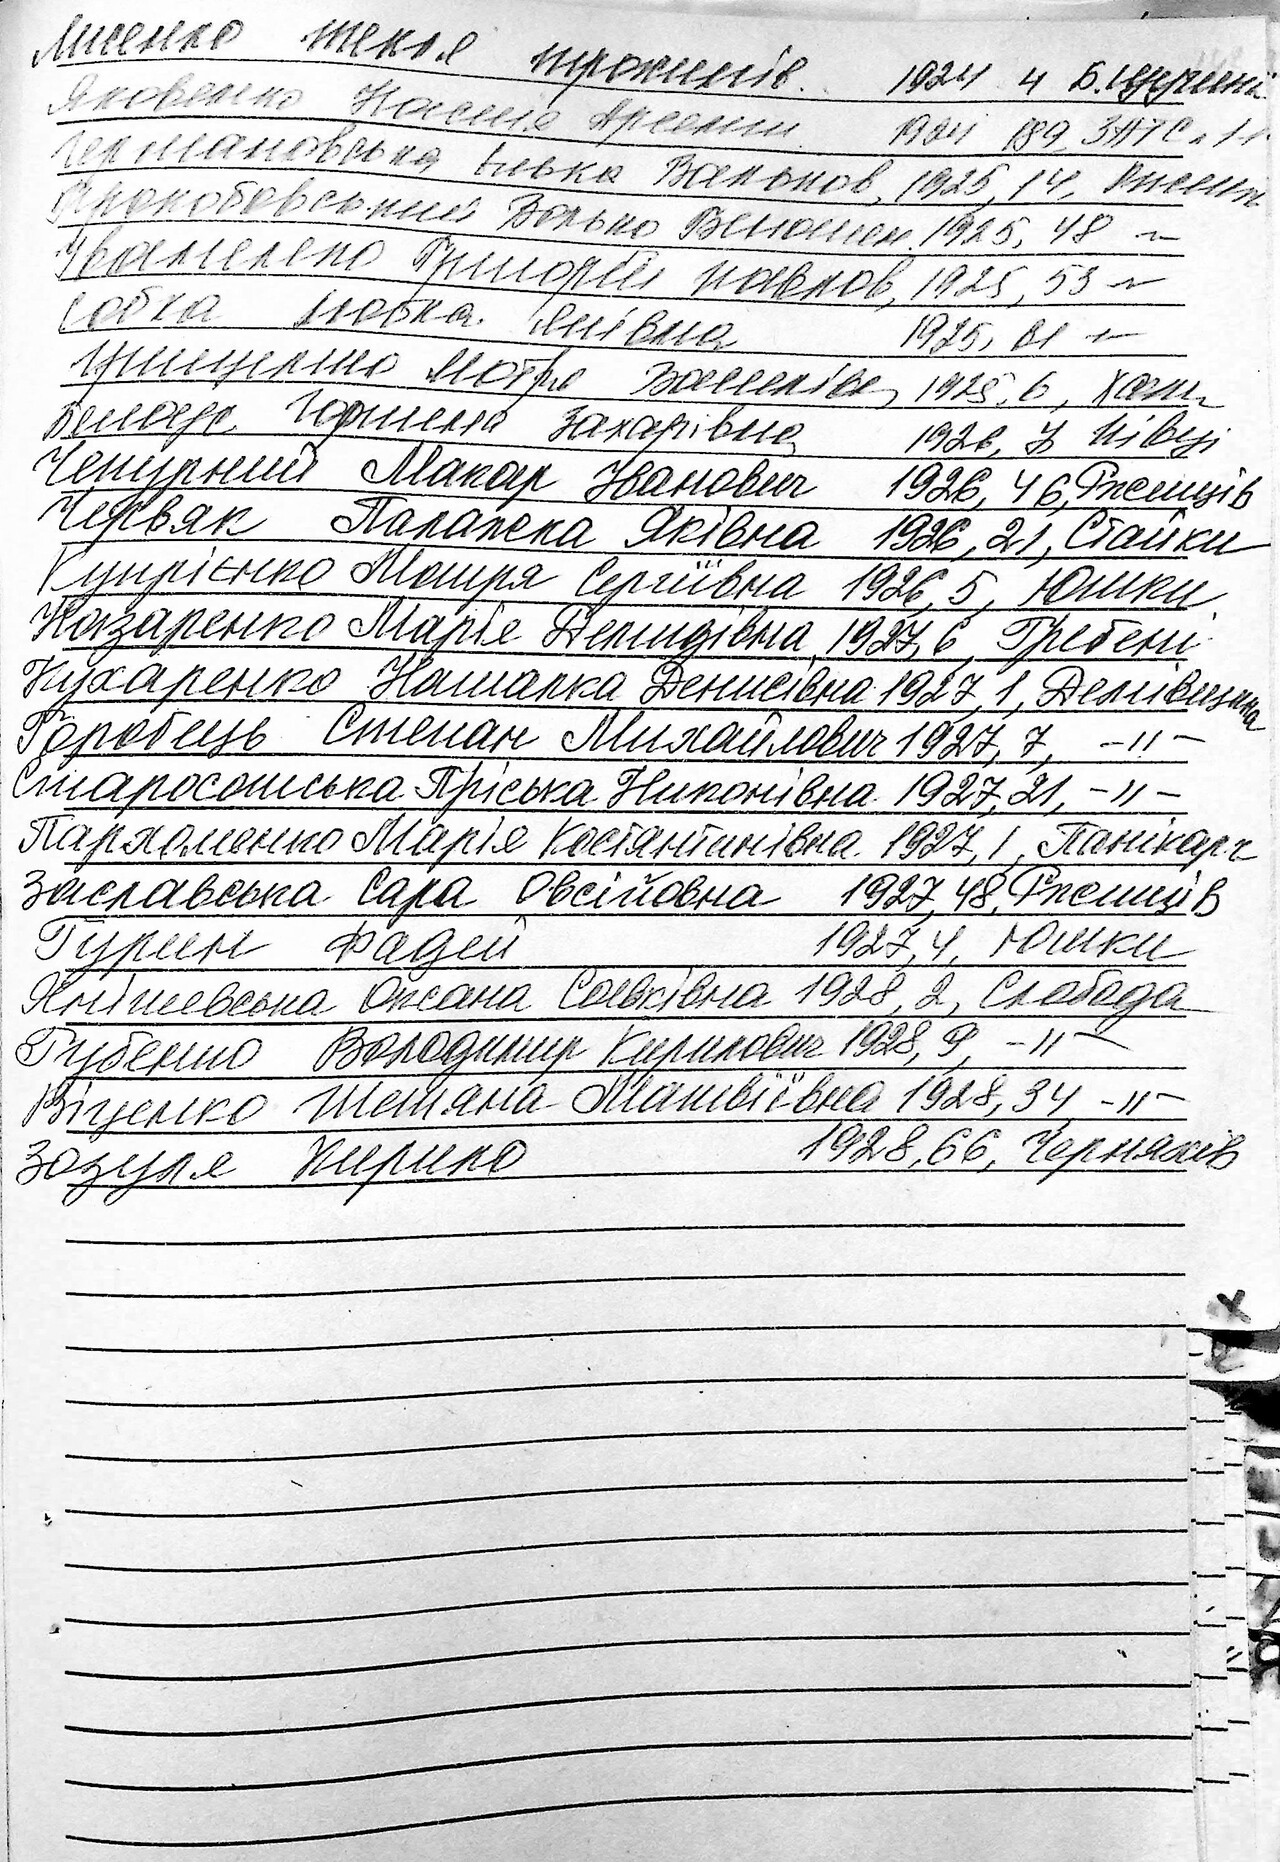 Лисенко Текля Трохимів. 1924 4 Б. Щучинк
Яковенко Настя Арсенти 1924 189 ЗАГС
Германовська Вальков, 1925, 14, Ржищ
1925, 48 -"-
Іваненко Григорій Павлов, 1925, 53 -"-
Собка Любка. 1925, -"-
Грищенко Мотря Василівн, 1925, 6,
Горпина Захарівна 1926, 7 Півці
Чепурний Макар Іванович 1926, 46, Ржищів
Червяк Параска Яківна 1926, 21, Стайки
Купрієнко Мотря Сергіївна 1926, 5, Юшки
Назаренко Марія Демидівна, 1927, 6, Гребені
Кухаренко Наталка Денисівна 1927, 1, Демівщина
Горобець Степан Михайлович 1927, 7, -"-
Старосотська Пріська Никонівна 1927, 21, -"-
Пархоменко Марія Костянтинівна. 1927, 1, Панікарч
Заславська Сара Овсійовна 1927, 48, Ржищів
Гурин Фадей 1927, 4, Юшки
Янішевська Оксана Савківна 1928, 2, Слобода
Губенко Володимир Кирилович 1928, 9, -"-
Віценко Тетяна Матвіївна 1928, 34, -"-
Зозуля Кирило 1928, 66, Черняхів